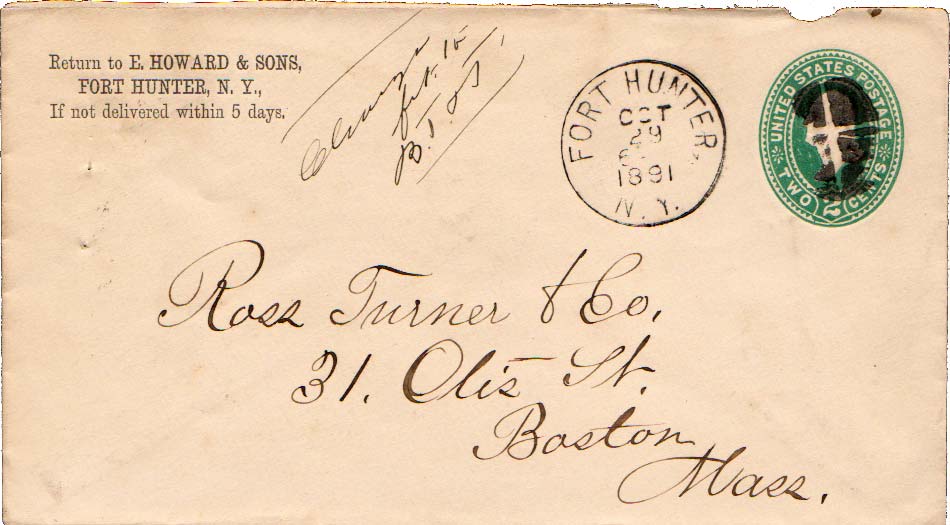 Return to E. HOWARD & SONS,
FORT HUNTER, N. Y.,
If not delivered within 5 days.
FORT HUNTER,
OCT
29
1891
N. Y.
UNITED STATES POSTAGE
TWO 2 CENTS
Ross Turner & Co.
31. Otis St.
Boston
Mass.